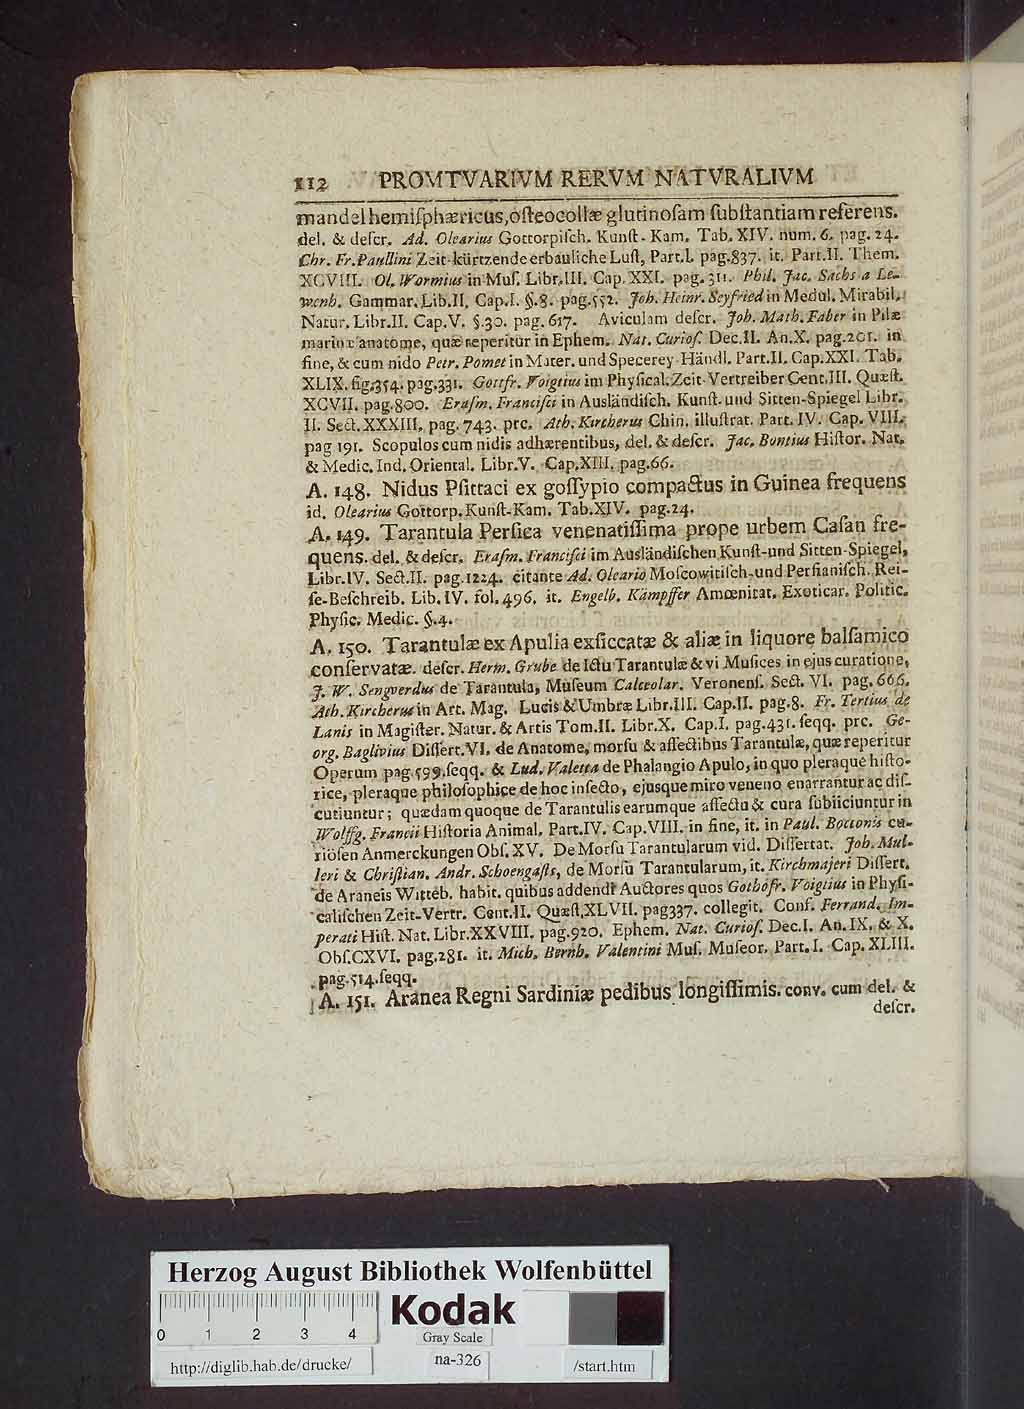 112 PROMTVARIVM RERVM NATVRALIVM
mandel hemiſphæricus, oſteocollæ glutinoſam ſubſtantiam referens.
del. & deſcr. Ad. Olearius Gottorpiſch. Kunſt-Kam. Tab. XIV. num. 6. pag. 24.
Chr. Fr. Paullini Zeit-kürtzende erbauliche Luſt, Part.I. pag.837. it. Part.II. Them.
XCVIII. Ol. Wormius in Muſ. Libr.III. Cap. XXI. pag. 311. Phil. Jac. Sachs a Le-
wenh. Gammar. Lib.II. Cap.I. §.8. pag.552. Joh. Heinr. Seyfried in Medul. Mirabil.
Natur. Libr.II. Cap.V. §.30. pag. 617. Aviculam deſcr. Joh. Math. Faber in Pilæ
marinæ anatome, quæ reperitur in Ephem. Nat. Curioſ. Dec.II. An.X. pag.201. in
fine, & cum nido Petr. Pomet in Mater. und Specerey-Händl. Part.II. Cap.XXI. Tab.
XLIX. fig.354. pag.331. Gottfr. Voigtius im Phyſical. Zeit-Vertreiber Cent.III. Quæſt.
XCVII. pag.800. Eraſm. Franciſci in Ausländiſch. Kunſt- und Sitten-Spiegel Libr.
II. Sect. XXXIII. pag. 743. prc. Ath. Kircherus Chin. illuſtrat. Part. IV. Cap. VIII.
pag 191. Scopulos cum nidis adhærentibus, del. & deſcr. Jac. Bontius Hiſtor. Nat.
& Medic. Ind. Oriental. Libr.V. Cap.XIII. pag.66.
A. 148. Nidus Pſittaci ex goſſypio compactus in Guinea frequens
id. Olearius Gottorp. Kunſt-Kam. Tab.XIV. pag.24.
A. 149. Tarantula Perſica venenatiſſima prope urbem Caſan fre-
quens. del. & deſcr. Eraſm. Franciſci im Ausländiſchen Kunſt-und Sitten-Spiegel,
Libr.IV. Sect.II. pag.1224. citante Ad. Oleario Moſcowitiſch-und Perſianiſch. Rei-
ſe-Beſchreib. Lib. IV. fol. 496. it. Engelb. Kämpffer Amœnitat. Exoticar. Politic.
Phyſic. Medic. §.4.
A. 150. Tarantulæ ex Apulia exſiccatæ & aliæ in liquore balſamico
conſervatæ. deſcr. Herm. Grube de Ictu Tarantulæ & vi Muſices in ejus curatione,
J. W. Senguerdus de Tarantula, Muſeum Calceolar. Veronenſ. Sect. VI. pag. 666.
Ath. Kircherus in Art. Mag. Lucis & Umbræ Libr.III. Cap.II. pag.8. Fr. Tertius de
Lanis in Magiſter. Natur. & Artis Tom.II. Libr.X. Cap.I. pag.431. ſeqq. prc. Ge-
org. Baglivius Diſſert.VI. de Anatome, morſu & affectibus Tarantulæ, quæ reperitur
Operum pag.599. ſeqq. & Lud. Valetta de Phalangio Apulo, in quo pleraque hiſto-
rice, pleraque philoſophice de hoc inſecto, ejusque miro veneno enarrantur ac diſ-
cutiuntur; quædam quoque de Tarantulis earumque affectu & cura ſubiiciuntur in
Wolffg. Francii Hiſtoria Animal. Part.IV. Cap.VIII. in fine, it. in Paul. Bocconis cu-
riöſen Anmerckungen Obſ. XV. De Morſu Tarantularum vid. Diſſertat. Joh. Mul-
leri & Chriſtian. Andr. Schoengaſts, de Morſu Tarantularum, it. Kirchmajeri Diſſert.
de Araneis Witteb. habit. quibus addendi Auctores quos Gothofr. Voigtius in Phyſi-
caliſchen Zeit-Vertr. Cent.II. Quæſt. XLVII. pag337. collegit. Conf. Ferrand. Im-
perati Hiſt. Nat. Libr. XXVIII. pag.920. Ephem. Nat. Curioſ. Dec.I. An.IX. & X.
Obſ. CXVI. pag.281. it. Mich. Bernh. Valentini Muſ. Muſeor. Part. I. Cap. XLIII.
pag.514. ſeqq.
A. 151. Aranea Regni Sardiniæ pedibus longiſſimis. conv. cum del. &
deſcr.
Herzog August Bibliothek Wolfenbüttel
0 1 2 3 4
Kodak
Gray Scale
http://diglib.hab.de/drucke/
na-326
/start.htm